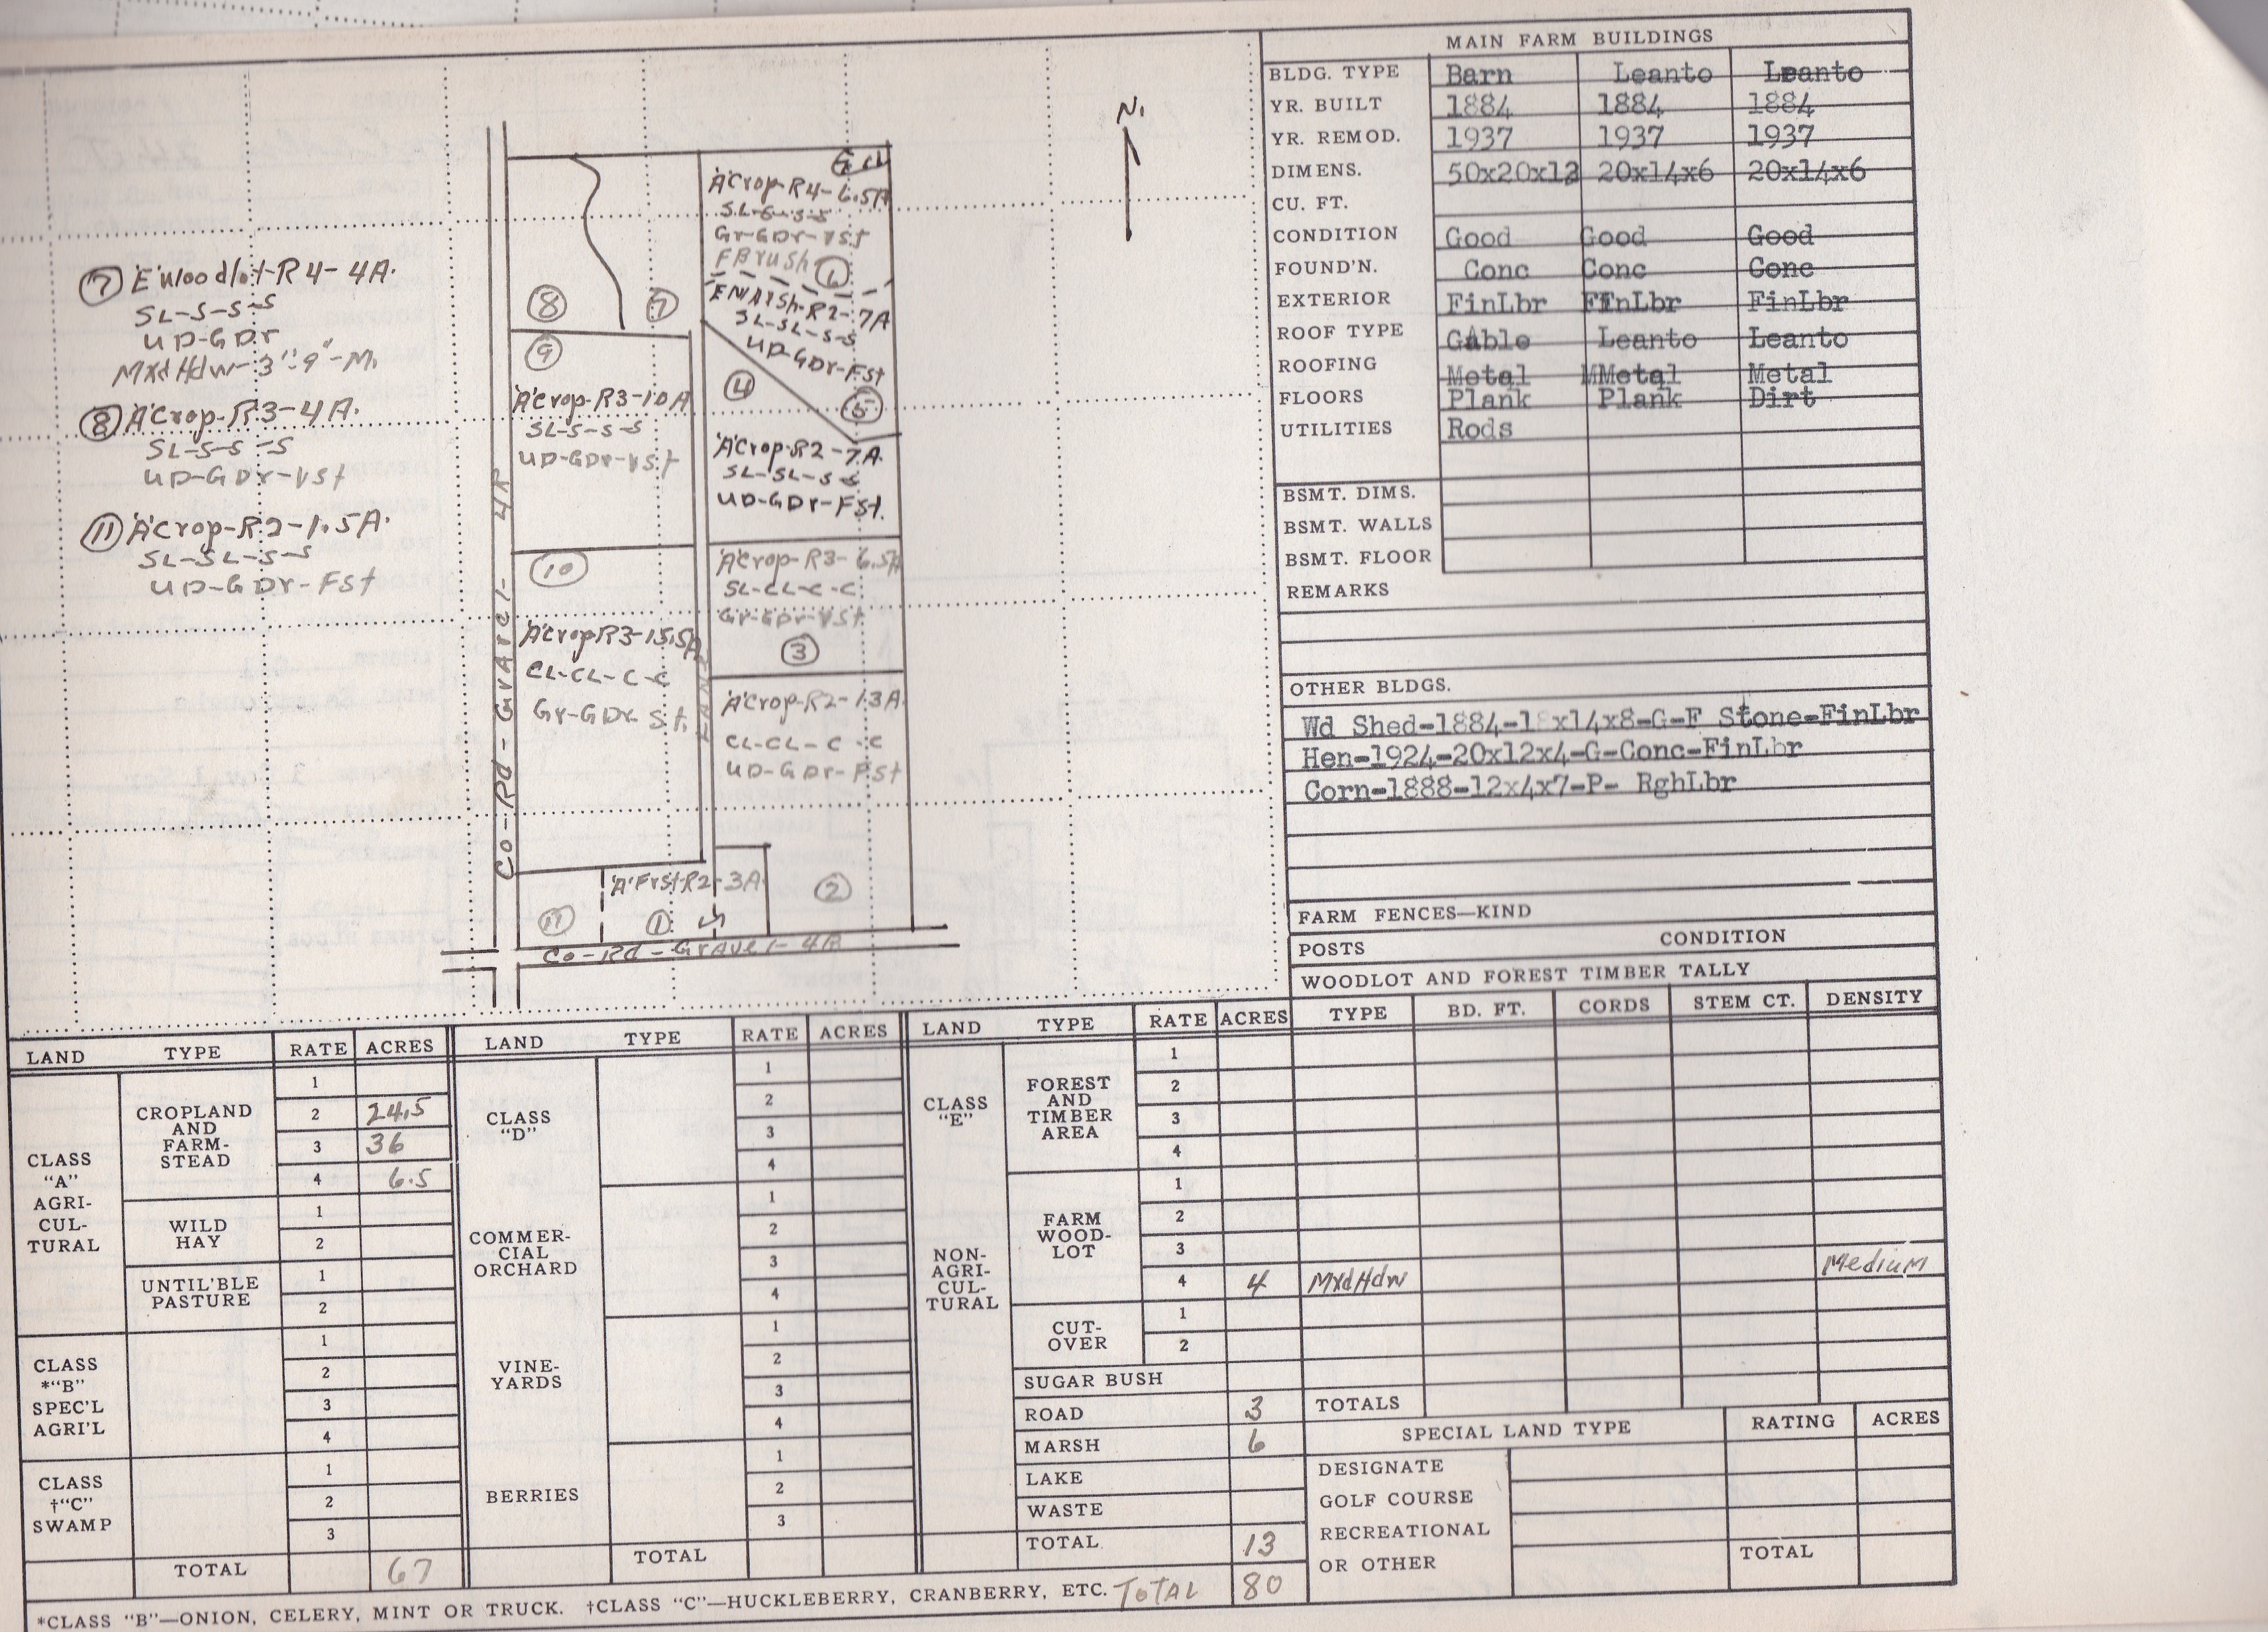 N.
⑦ 'E' Woodlot-R4-4A.
SL-S-S-S
UD-GDr
MxdHdw-3"-9"-M.
⑧ 'A' Crop-R3-4A.
SL-S-S-S
UD-GDr-Vst
⑪ 'A' Crop-R2-1.5A.
SL-SL-S-S
UD-GDr-Fst
'A' Crop-R4-6.5A
SL-S-S-S
Gr-GDr-Vst
FBrush
⑥
⑧
⑦
SL-SL-S-S
UD-GDr-Fst
④
⑤
⑨
'A' Crop-R3-10A
SL-S-S-S
UD-GDr-Vst
'A' Crop-R2-7A.
SL-SL-S-S
UD-GDr-Fst.
⑩
'A' Crop R3-15.5A
CL-CL-C-C
Gr-GDr-St.
'A' Crop-R3-6.5A
SL-CL-C-C
Gr-GDr-Vst
③
'A' Crop-R2-13A.
CL-CL-C-C
UD-GDr-Fst
LANE
Co-Rd-Gravel-4R
'A' Frst-R2-3A
⑪
①
②
Co-Rd-Gravel-4R
MAIN FARM BUILDINGS
BLDG. TYPE Barn Leanto Leanto
YR. BUILT 1884 1884 1884
YR. REMOD. 1937 1937 1937
DIMENS. 50x20x12 20x14x6 20x14x6
CU. FT.
CONDITION Good Good Good
FOUND'N. Conc Conc Conc
EXTERIOR FinLbr FinLbr FinLbr
ROOF TYPE Gable Leanto Leanto
ROOFING Metal MMetal Metal
FLOORS Plank Plank Dirt
UTILITIES Rods
BSMT. DIMS.
BSMT. WALLS
BSMT. FLOOR
REMARKS
OTHER BLDGS.
Wd Shed-1884-18x14x8-G-F Stone-FinLbr
Hen-1924-20x12x4-G-Conc-FinLbr
Corn-1888-12x4x7-P- RghLbr
FARM FENCES—KIND
POSTS CONDITION
WOODLOT AND FOREST TIMBER TALLY
TYPE BD. FT. CORDS STEM CT. DENSITY
LAND TYPE RATE ACRES LAND TYPE RATE ACRES LAND TYPE RATE ACRES
CLASS
"A"
AGRI-
CUL-
TURAL
CROPLAND
AND
FARM-
STEAD
1
2 24.5
3 36
4 6.5
WILD
HAY
1
2
UNTIL'BLE
PASTURE
1
2
CLASS
*"B"
SPEC'L
AGRI'L
1
2
3
4
CLASS
†"C"
SWAMP
1
2
3
TOTAL 67
CLASS
"D"
1
2
3
4
COMMER-
CIAL
ORCHARD
1
2
3
4
VINE-
YARDS
1
2
3
4
BERRIES
1
2
3
TOTAL
CLASS
"E"
NON-
AGRI-
CUL-
TURAL
FOREST
AND
TIMBER
AREA
1
2
3
4
FARM
WOOD-
LOT
1
2
3
4 4 MxdHdw Medium
CUT-
OVER
1
2
SUGAR BUSH
ROAD 3 TOTALS
MARSH 6
LAKE
WASTE
TOTAL 13
SPECIAL LAND TYPE RATING ACRES
DESIGNATE
GOLF COURSE
RECREATIONAL
OR OTHER
TOTAL
*CLASS "B"—ONION, CELERY, MINT OR TRUCK. †CLASS "C"—HUCKLEBERRY, CRANBERRY, ETC. TOTAL 80